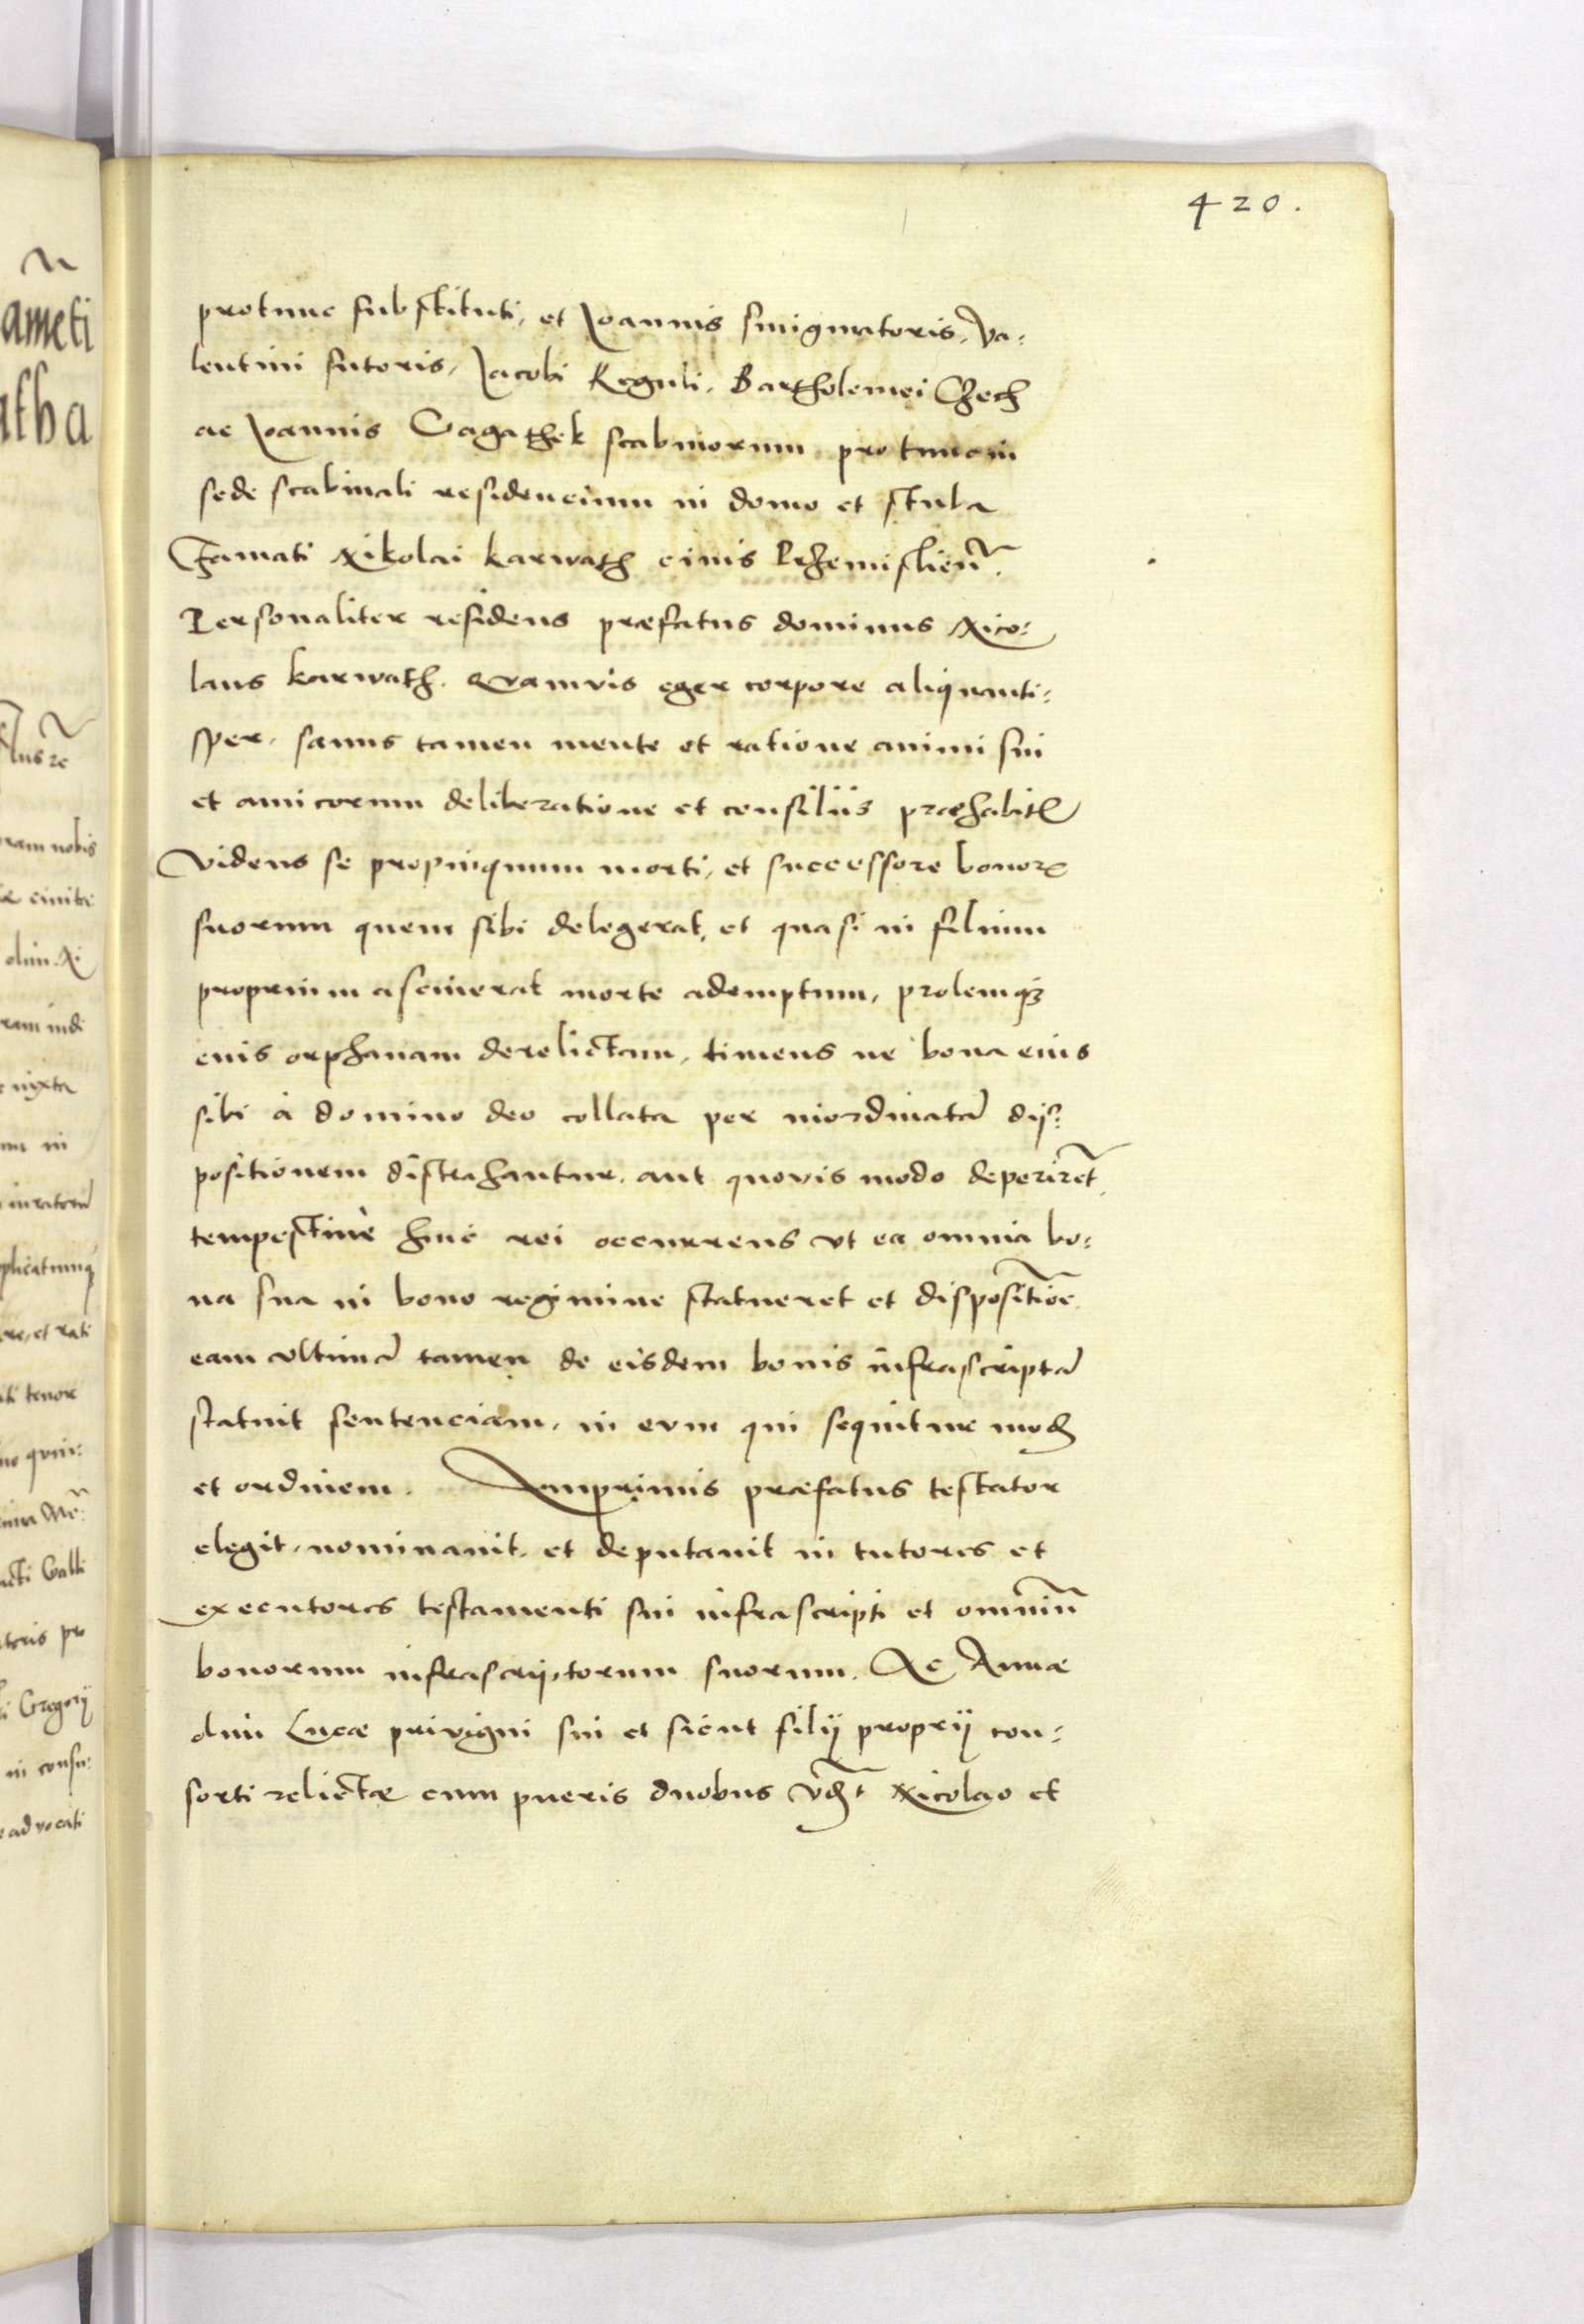 420.
protunc substituti, et Joannis smigmatoris, Va:
lentini sutoris, Jacobi Reguli, Bartholemei Czech
ac Joannis Gagathek scabinorum protunc in
sede scabinali residencium in domo et stuba
famati Nikolai Karwath civis Przemislien̄.
Personaliter residens præfatus dominus Nico:
laus Karwath. Quamvis eger corpore aliquanti:
sper, sanus tamen mente et ratione animi sui
et amicorum deliberatione et consiliis præhabit̄
Videns se propinquum morti, et successore bonor̄
suorum quem sibi delegerat, et quasi in filium
proprium asciverat morte ademptum, prolemqꝫ
eius orphanam derelictam, timens ne bona eius
sibi à domino deo collata per inordinatā dis:
positionem distrahantur, aut quovis modo deperirēt,
tempestivè huic rei occurrens vt ea omnia bo:
na sua in bono regimine statueret et dispositiōe
eam vltimā tamen de eisdem bonis infrascriptā
statuit sentenciam, in eum qui sequitur mod̄
et ordinem. Inprimis præfatus testator
elegit, nominavit, et deputavit in tutores et
executores testamenti sui infrascripti et omniū
bonorum infrascriptorum suorum. Ac Annæ
olim Lucæ privigni sui et sicut filij proprij con:
sorti relictæ cum pueris duobus vid̄t Nicolao et